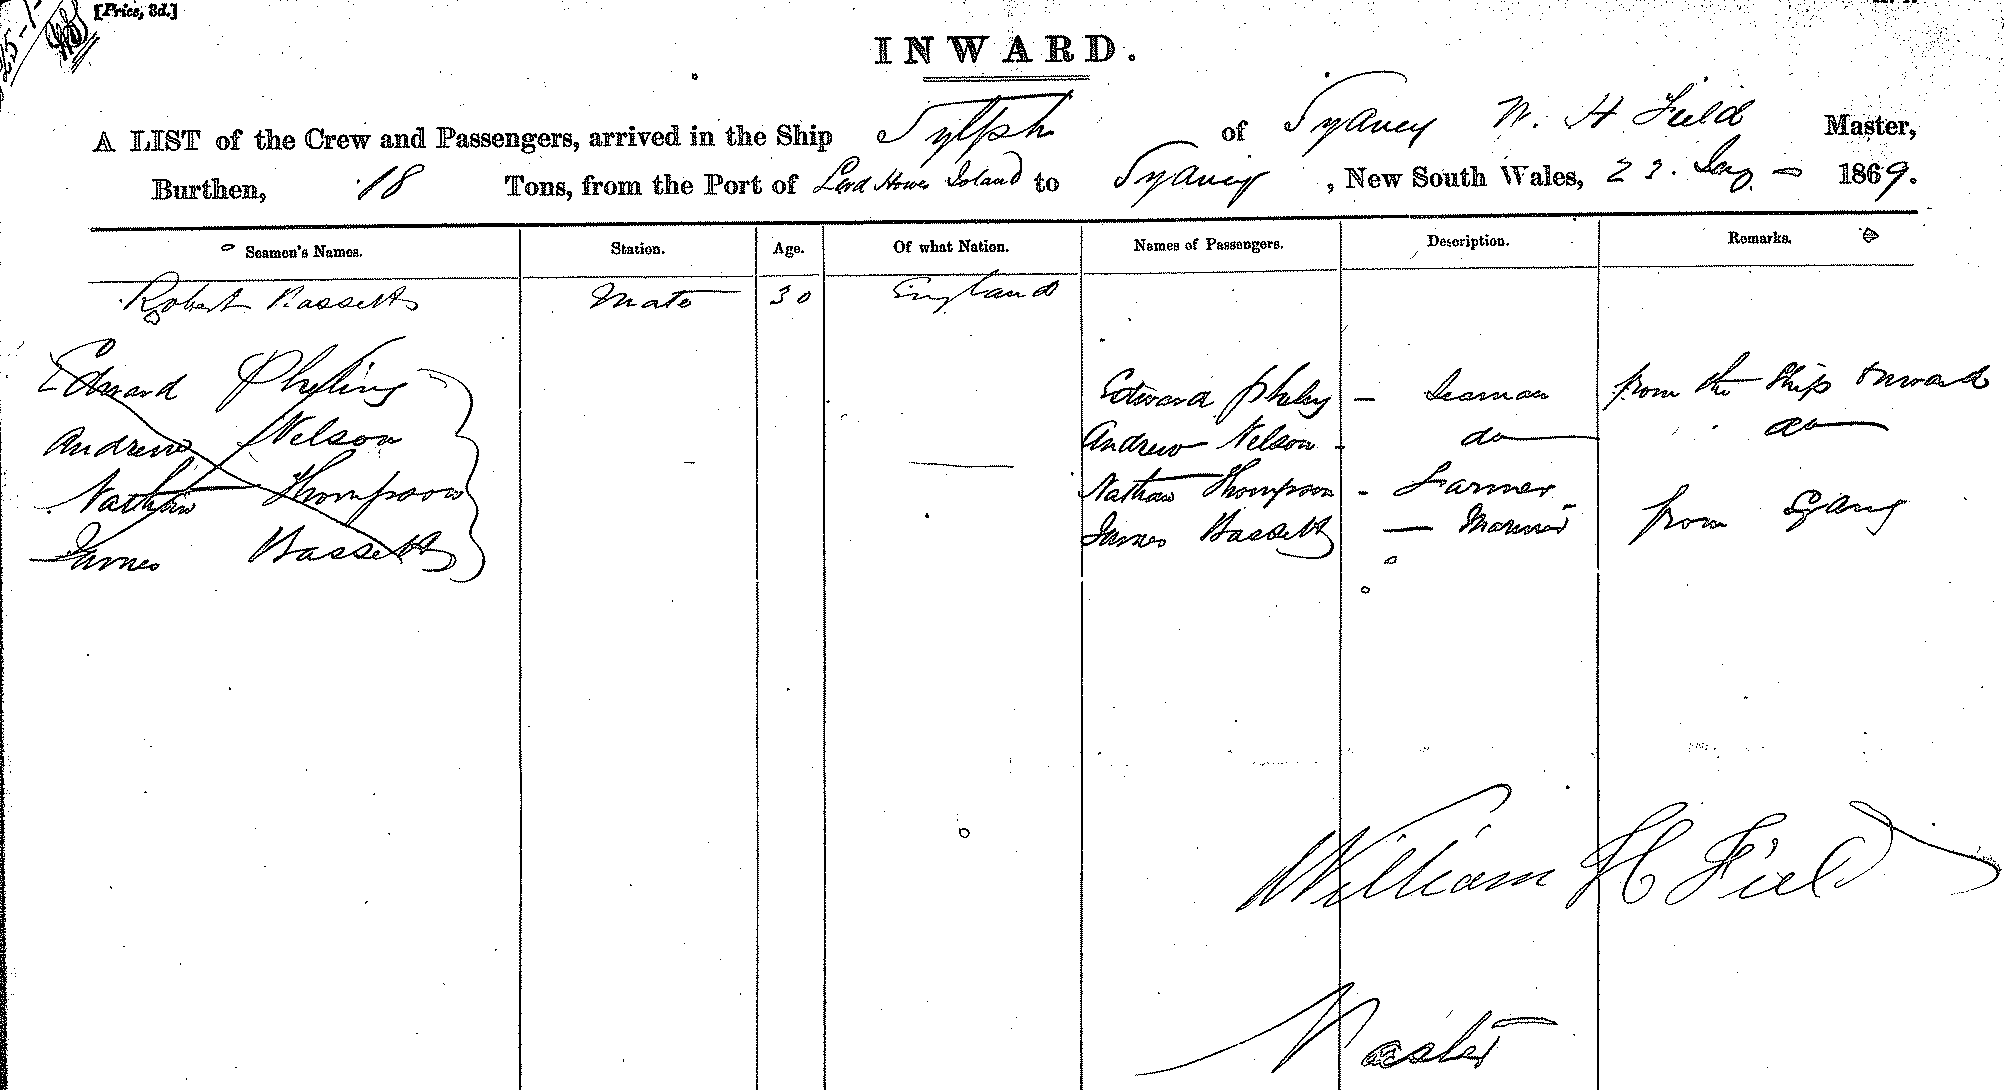 [Price, 3d.]
INWARD.
A LIST of the Crew and Passengers, arrived in the Ship Sylph of Sydney W. H Field Master,
Burthen, 18 Tons, from the Port of Lord Howe Island to Sydney, New South Wales, 23. Jany 1869.
Seamen's Names. Station. Age. Of what Nation. Names of Passengers. Description. Remarks.
Robert Bassett Mate 30 England
Edward Edward - Seaman from the Ship Onward
Andrew Nelson Andrew Nelson - do do
Nathan Thompson Nathan Thompson - Farmer
James Bassett James Bassett - Mariner from
William H Field
Master